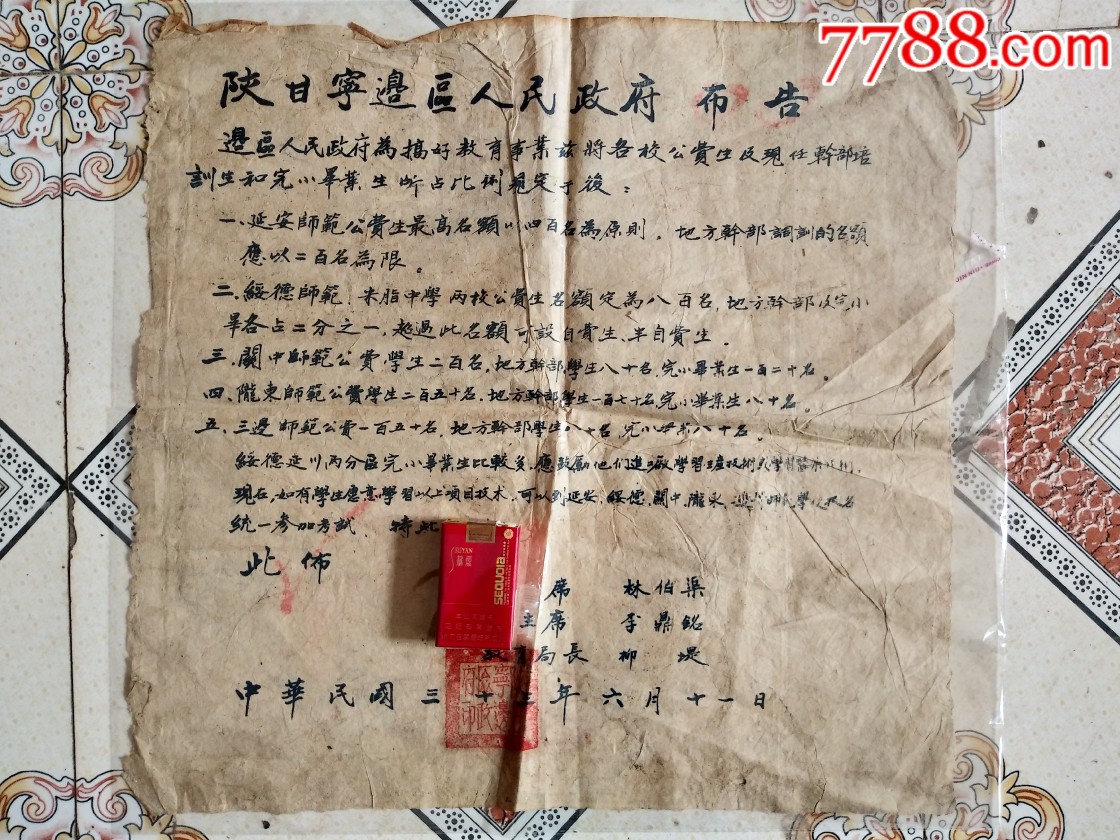 7788.com
陝甘寧邊區人民政府 布告
邊區人民政府為搞好教育事業茲將各校公費生及現任幹部培
訓生和完小畢業生所占比例規定于後：
一、延安師範公費生最高名額以四百名為原則。地方幹部調訓的名額
應以二百名為限。
二、綏德師範、米脂中學兩校公費生名額定為八百名，地方幹部及完小
畢各占二分之一，超過此名額可設自費生、半自費生。
三、關中師範公費學生二百名，地方幹部學生八十名，完小畢業生一百二十名。
四、隴東師範公費學生二百五十名，地方幹部學生一百七十名，完小畢業生八十名。
五、三邊師範公費一百五十名，地方幹部學生八十名，完小畢業八十名。
綏德延川兩分區完小畢業生比較多，應鼓勵他們進工廠學習生產技術
現在，如有學生愿意學習以上項目技术，可以到延安、綏德、關中、隴東
統一參加考試、特此
此佈
席 林伯渠
主席 李鼎銘
教育局長 柳湜
中華民國三十三年六月十一日
SUYAN
蘇煙
SEQUOIA